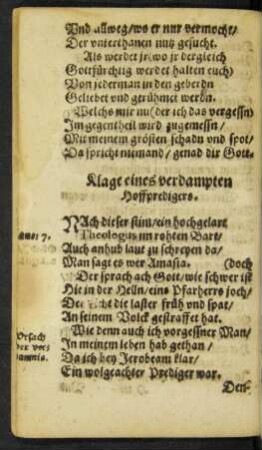 Vnd allweg/wo er nur vermocht/
Der vnterthanen nutz gesucht.
Als werdet jr(wo jr dergleich
Gottfürchtig werdet halten euch)
Von jederman in den geberdn
Geliebet vnd gerühmet werdn.
Welchs mir nu(der ich das vergessn)
Im gegentheil wird zugemessn/
Mit meinem grösten schadn vnd spot/
Da spricht niemand/genad dir Gott.
Klage eines verdampten
Hoffpredigers.
NAch dieser stim/ein hochgelart
Theologus im rohten Bart/
Auch anhub laut zu schreyen da/
Man sagt es wer Amasia. (doch
Der sprach ach Gott/wie schwer ist
Hie in der Helln/eins Pfarherrs joch/
die laster früh vnd spat/
An seinem Volck gestraffet hat.
Wie denn auch ich vorgessner Man/
In meinem leben hab gethan/
Da ich bey Jerobeam klar/
Ein wolgeachter Prediger war.
Den-
7.
Vrsach
der ver-
damnis.